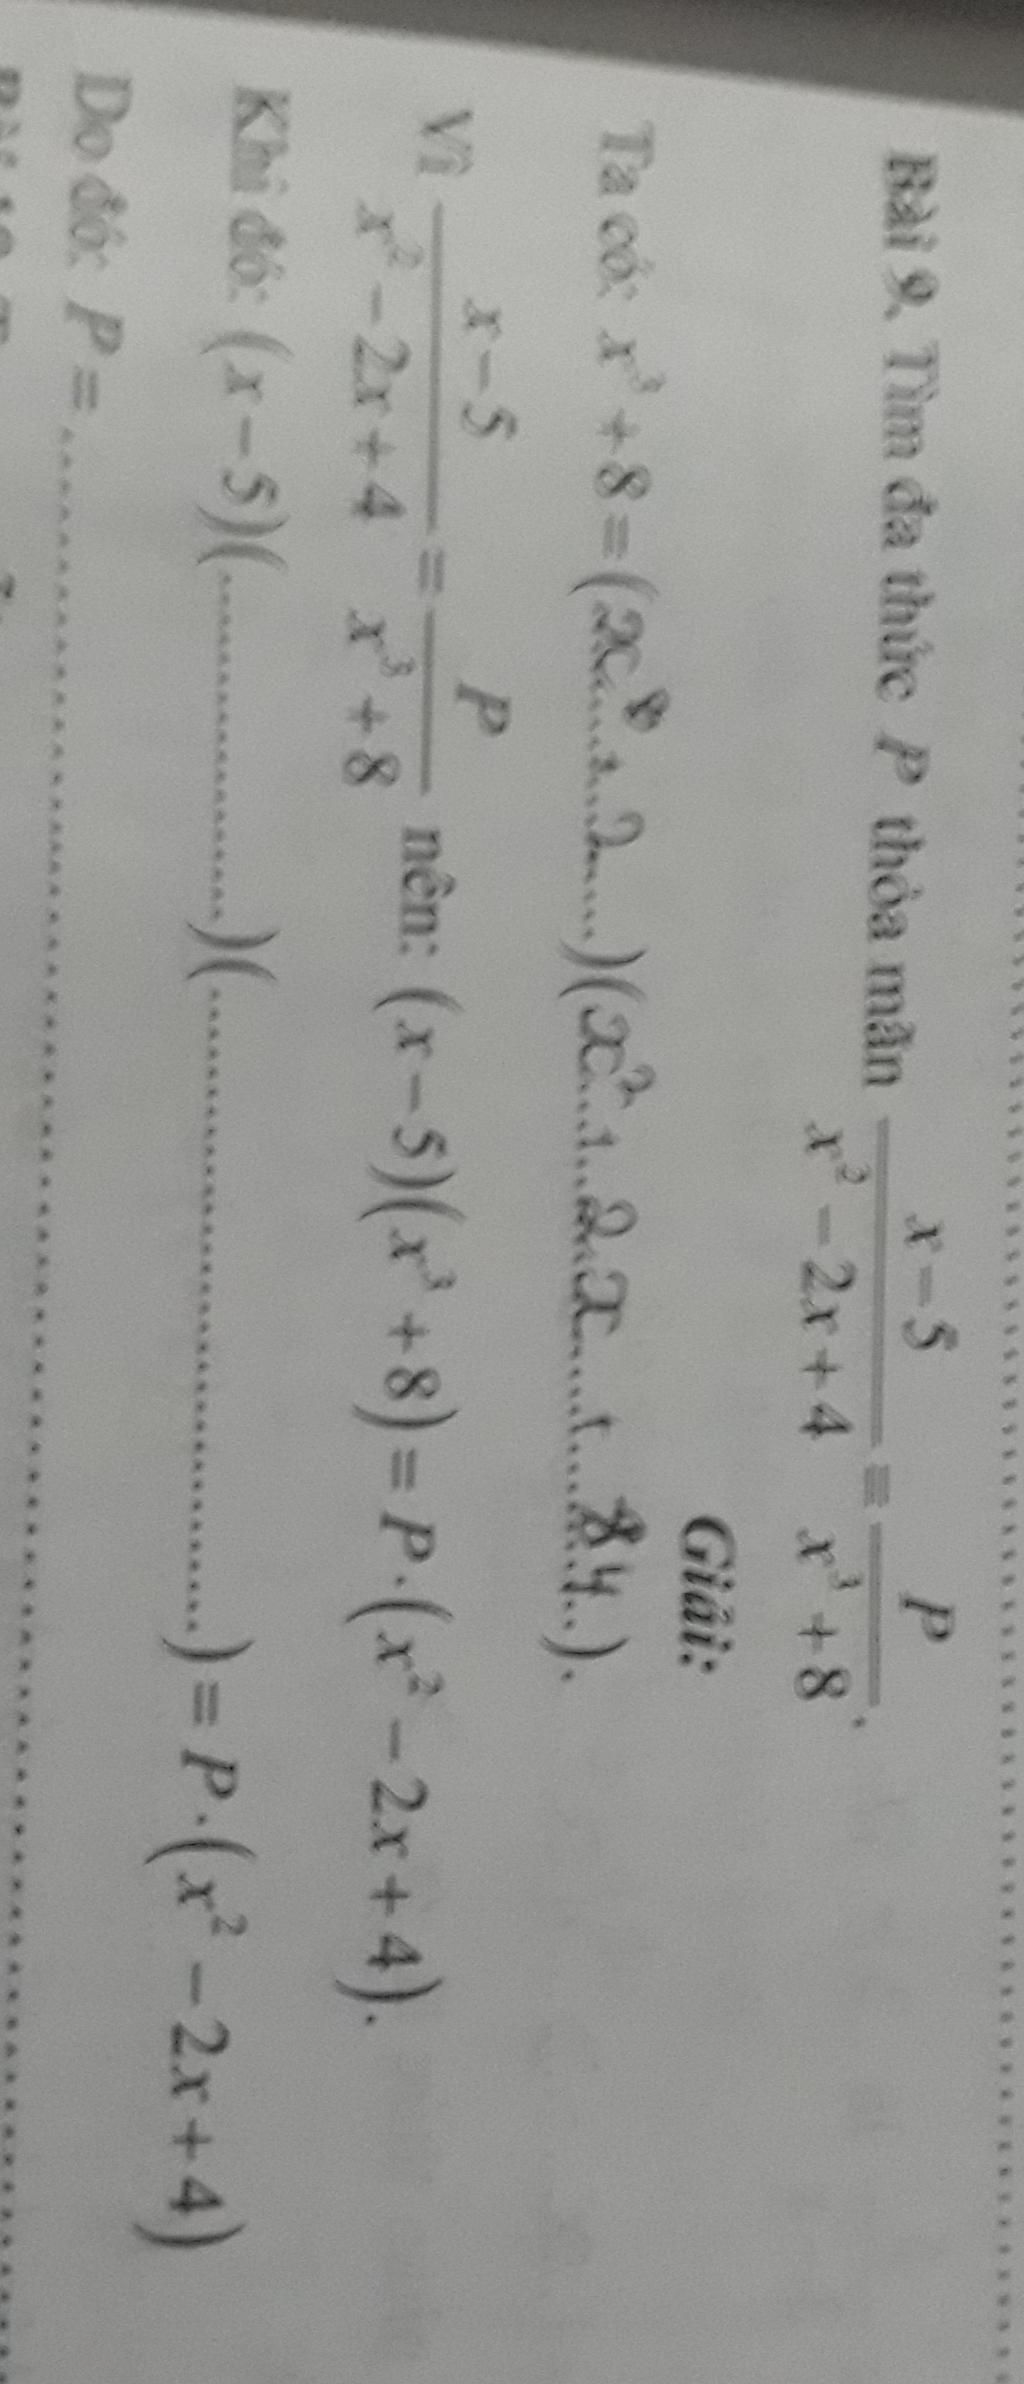 Bài 9. Tìm đa thức P thỏa mãn (x – 5)/(x² – 2x + 4) = P/(x³ + 8).
Giải:
Ta có: x³ + 8 = (x + 2)(x² + 2x + 4).
Vì (x – 5)/(x² – 2x + 4) = P/(x³ + 8) nên: (x – 5)(x³ + 8) = P.(x² – 2x + 4).
Khi đó: (x – 5)(....................)(........................................) = P.(x² – 2x + 4)
Do đó: P = ........................................